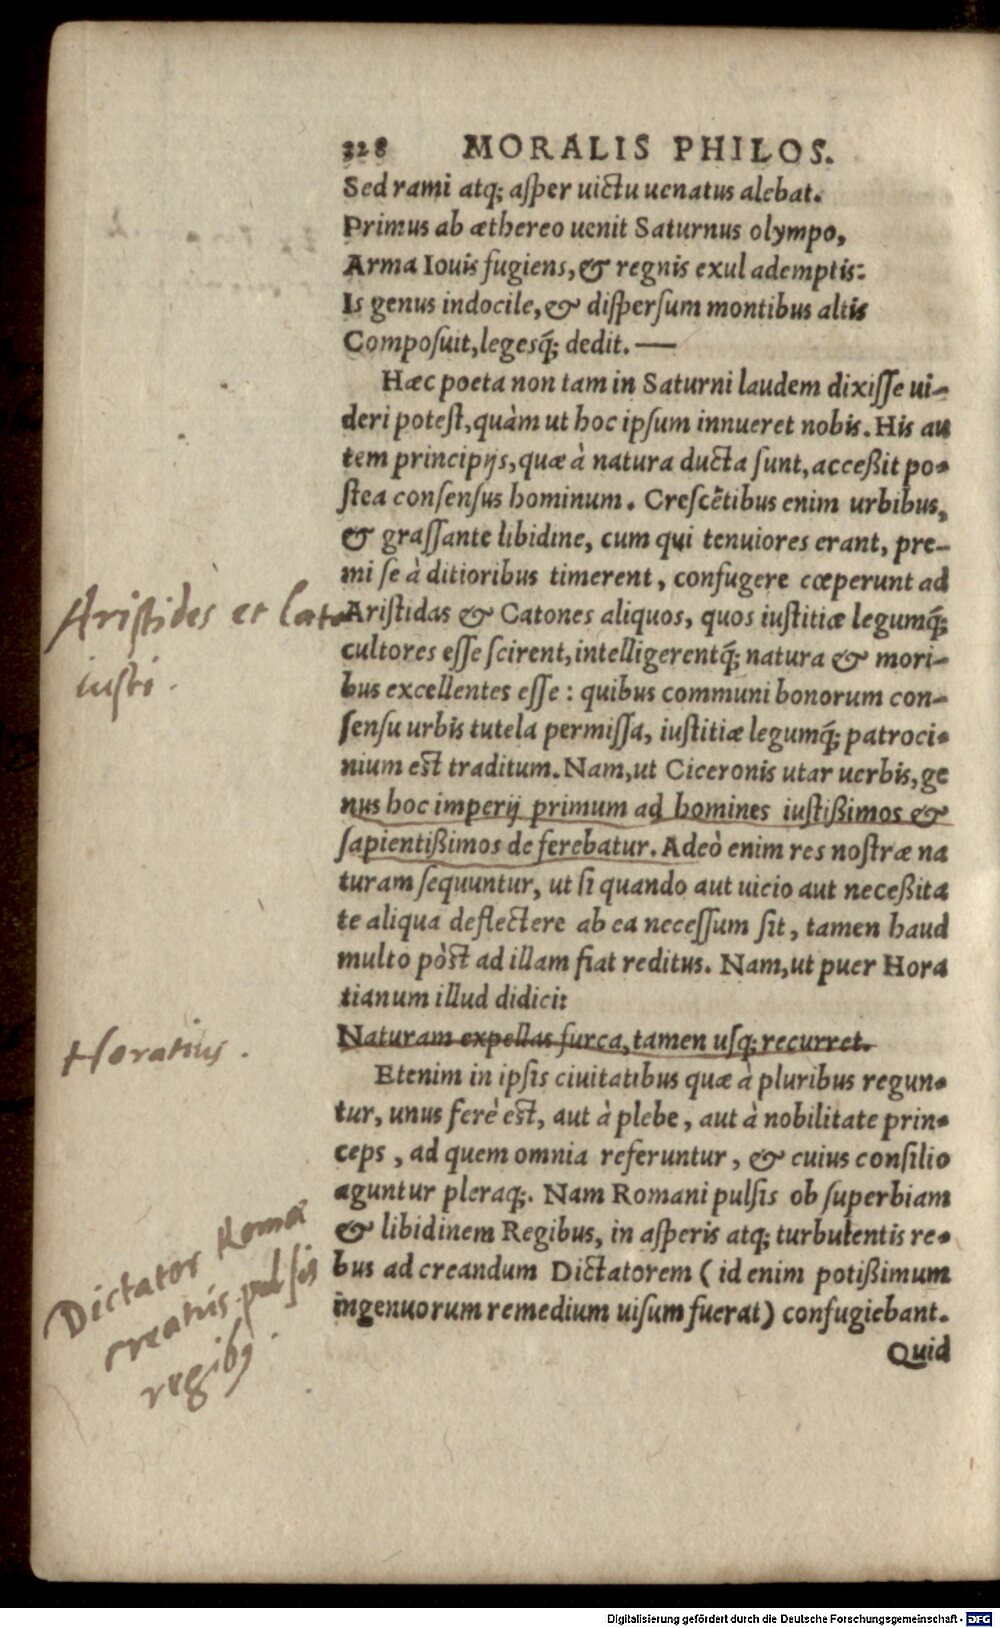 328 MORALIS PHILOS.
Sed rami atq; aſper uictu uenatus alebat.
Primus ab æthereo uenit Saturnus olympo,
Arma Iouis fugiens, & regnis exul ademptis:
Is genus indocile, & diſperſum montibus altis
Compoſuit, legesq́; dedit. —
Hæc poeta non tam in Saturni laudem dixiſſe ui-
deri poteſt, quàm ut hoc ipſum innueret nobis. His au
tem principijs, quæ à natura ducta ſunt, acceßit po-
ſtea conſenſus hominum. Creſcẽtibus enim urbibus,
& graſſante libidine, cum qui tenuiores erant, pre-
mi ſe à ditioribus timerent, confugere cœperunt ad
Aristidès et Cato
Ariſtidas & Catones aliquos, quos iuſtitiæ legumq́;
cultores eſſe ſcirent, intelligerentq́; natura & mori-
iusti.
bus excellentes eſſe: quibus communi bonorum con-
ſenſu urbis tutela permiſſa, iuſtitiæ legumq́; patroci-
nium eſt traditum. Nam, ut Ciceronis utar uerbis, ge
nus hoc imperij primum ad homines iuſtißimos &
ſapientißimos deferebatur. Adeò enim res noſtræ na
turam ſequuntur, ut ſi quando aut uicio aut neceßita
te aliqua deflectere ab ea neceſſum ſit, tamen haud
multo pòſt ad illam fiat reditus. Nam, ut puer Hora
tianum illud didici:
Naturam expellas furca, tamen uſq; recurret.
Horatius.
Etenim in ipſis ciuitatibus quæ à pluribus regun-
tur, unus ferè eſt, aut à plebe, aut à nobilitate prin-
ceps, ad quem omnia referuntur, & cuius conſilio
aguntur pleraq;. Nam Romani pulſis ob ſuperbiam
& libidinem Regibus, in aſperis atq; turbulentis re-
bus ad creandum Dictatorem (id enim potißimum
ingenuorum remedium uiſum fuerat) confugiebant.
Dictator Romæ
creatus pulſis
regibꝫ.
Quid
Digitalisierung gefördert durch die Deutsche Forschungsgemeinschaft - DFG